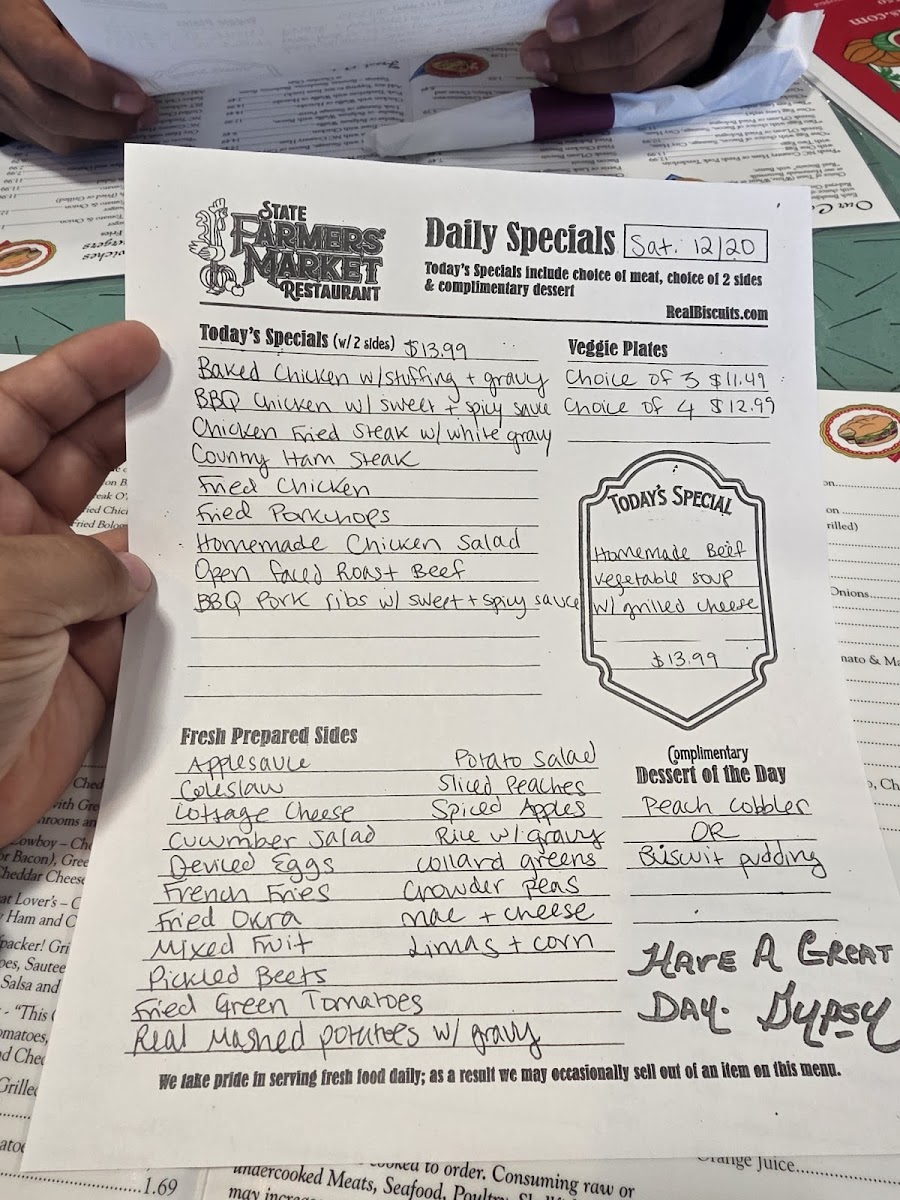 STATE
FARMERS'
MARKET
RESTAURANT
Daily Specials Sat. 12/20
Today's Specials include choice of meat, choice of 2 sides
& complimentary dessert
RealBiscuits.com
Today's Specials (w/2 sides) $13.99
Baked Chicken w/stuffing + gravy
BBQ Chicken w/ sweet + spicy sauce
Chicken Fried Steak w/ white gravy
Country Ham Steak
Fried Chicken
Fried Porkchops
Homemade Chicken Salad
Open faced Roast Beef
BBQ Pork ribs w/ sweet + spicy sauce
Veggie Plates
Choice of 3 $11.49
Choice of 4 $12.99
TODAY'S SPECIAL
Homemade Beef
vegetable soup
w/ grilled cheese
$13.99
Fresh Prepared Sides
Applesauce
Coleslaw
Cottage Cheese
Cucumber Salad
Deviled Eggs
French Fries
Fried Okra
Mixed Fruit
Pickled Beets
Fried Green Tomatoes
Real Mashed potatoes w/ gravy
Potato Salad
Sliced Peaches
Spiced Apples
Rice w/ gravy
Collard greens
Crowder peas
mac + cheese
Limas + corn
Complimentary
Dessert of the Day
Peach Cobbler
OR
Biscuit pudding
HAVE A GREAT
DAY. Gypsy
We take pride in serving fresh food daily; as a result we may occasionally sell out of an item on this menu.
1.69
undercooked Meats, Seafood, Poultry
cooked to order. Consuming raw or
Orange Juice